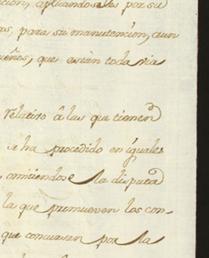 cion, aplicandoseles por su
as, para su manutencion, aun
ueños; que estan toda via
relativo â las que tienen
se ha procedido en iguales
, omitiendose la disputa
la que promueven los con-
que concurren por la